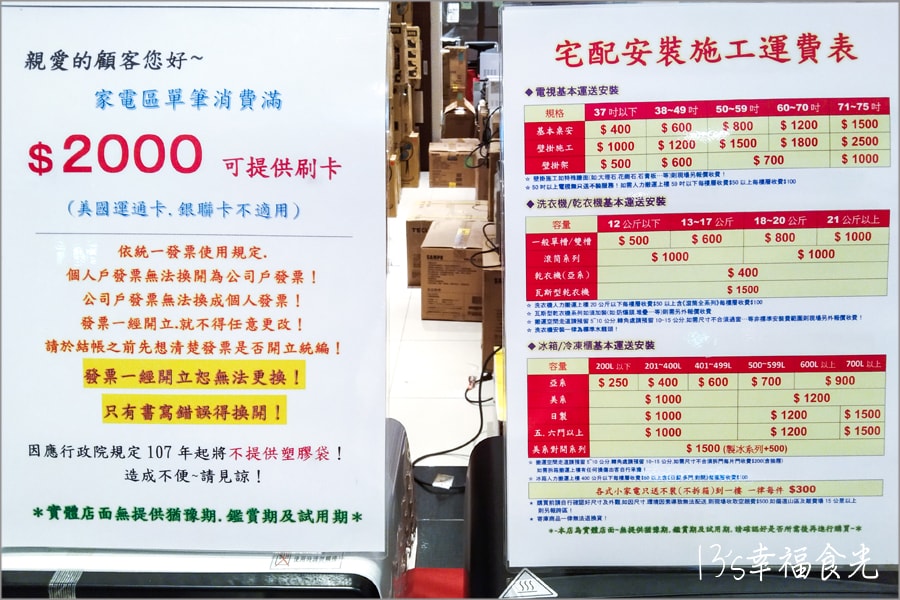 親愛的顧客您好~
家電區單筆消費滿
$2000 可提供刷卡
(美國運通卡.銀聯卡不適用)
依統一發票使用規定.
個人戶發票無法換開為公司戶發票！
公司戶發票無法換成個人發票！
發票一經開立.就不得任意更改！
請於結帳之前先想清楚發票是否開立統編！
發票一經開立恕無法更換！
只有書寫錯誤得換開！
因應行政院規定107年起將不提供塑膠袋！
造成不便~請見諒！
*實體店面無提供猶豫期.鑑賞期及試用期*
宅配安裝施工運費表
◆電視基本運送安裝
規格 37吋以下 38~49吋 50~59吋 60~70吋 71~75吋
基本桌安 $400 $600 $800 $1200 $1500
壁掛施工 $1000 $1200 $1500 $1800 $2500
壁掛架 $500 $600 $700 $1000
◆洗衣機/乾衣機基本運送安裝
容量 12公斤以下 13~17公斤 18~20公斤 21公斤以上
一般單槽/雙槽 $500 $600 $800 $1000
滾筒系列 $1000 $1000
乾衣機(亞系) $400
瓦斯型乾衣機 $1500
★ 洗衣機安裝一律為標準水龍頭！
◆冰箱/冷凍櫃基本運送安裝
容量 200L以下 201~400L 401~499L 500~599L 600L以上 700L以上
亞系 $250 $400 $600 $700 $900
美系 $1000 $1200
日製 $1000 $1200 $1500
五.六門以上 $1000 $1200 $1500
美系對開系列 $1500 (製冰系列+500)
各式小家電只送不裝(不拆箱)到一樓 一律每件 $300
★ 客庫商品一律無法退換貨！
*-本店為實體店面-無提供猶豫期.鑑賞期及試用期.請確認好是否所需後再進行購買-*
SAMPO
13's幸福食光